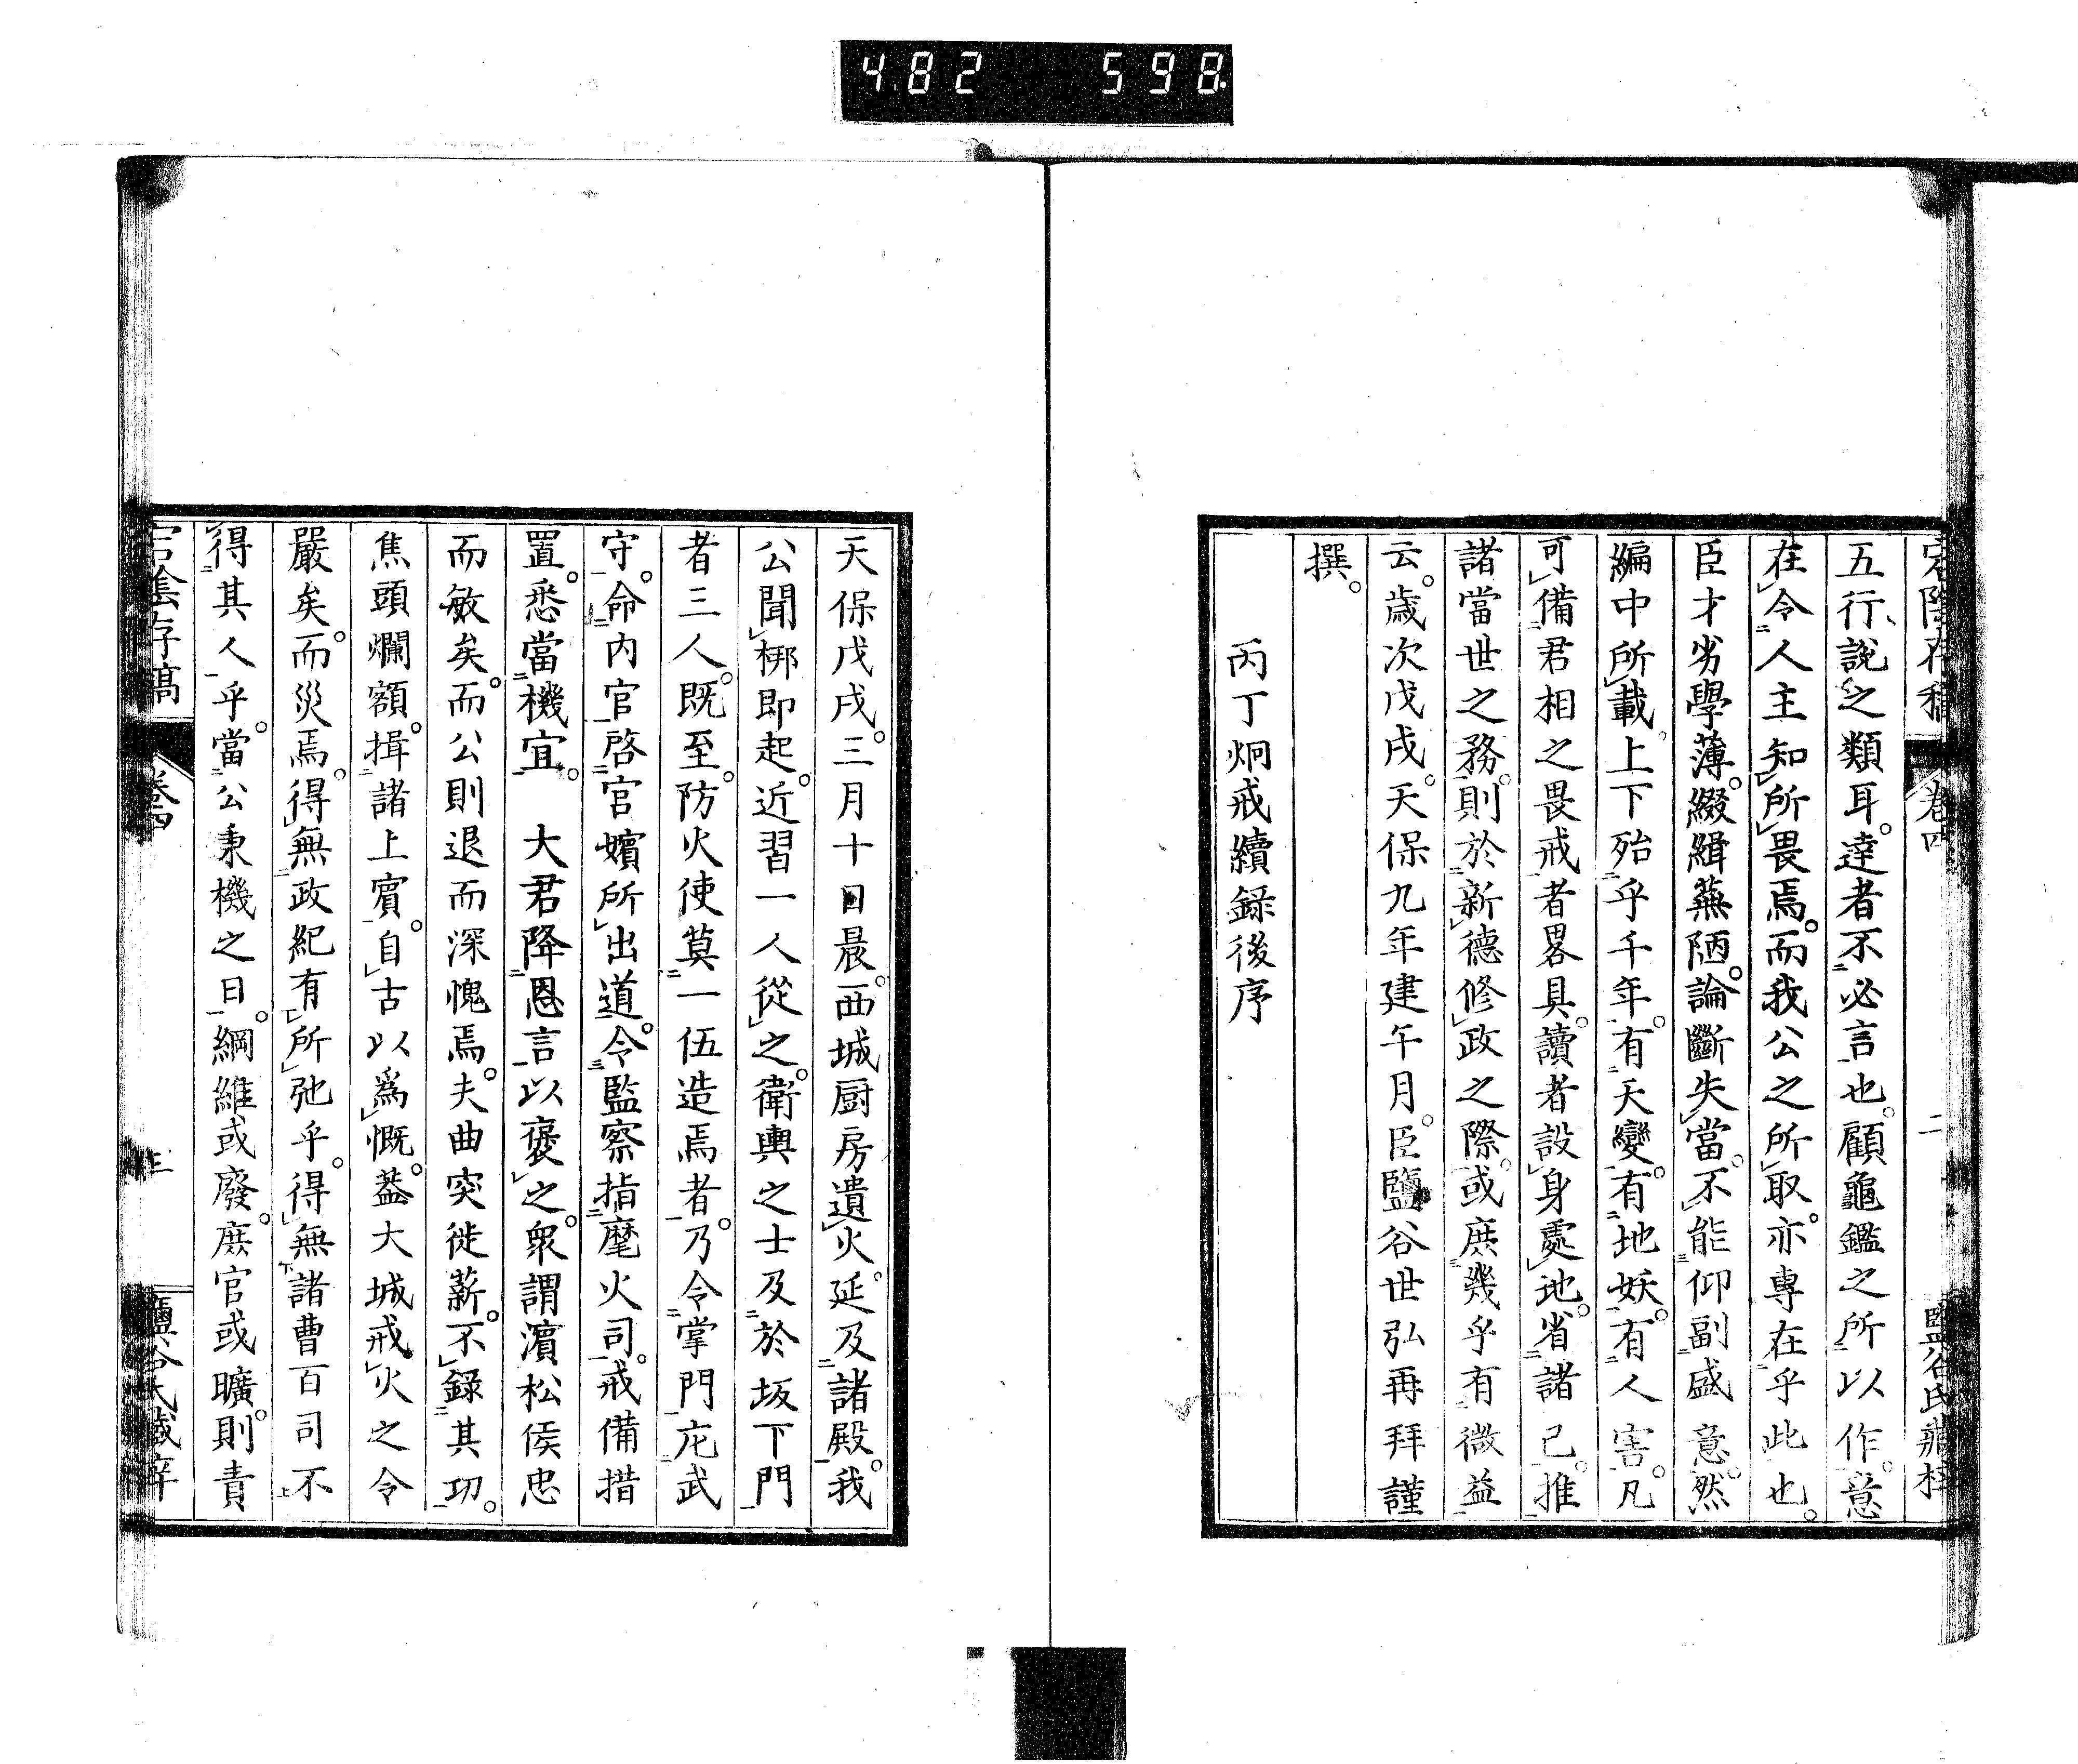 482 598
宕陰存稿 卷四 二 鹽谷氏藏梓
五行説之類耳。達者不必言也。顧龜鑑之所以作。意
在令人主知所畏焉。而我公之所取。亦專在乎此也。
臣才劣學薄。綴緝蕪陋。論斷失當。不能仰副盛意。然
編中所載。上下殆乎千年。有天變。有地妖。有人害。凡
可備君相之畏戒者畧具。讀者設身處地。省諸己。推
諸當世之務。則於新德修政之際。或庶幾乎有微益
云。歲次戊戌。天保九年建午月。臣鹽谷世弘再拜謹
撰。
丙丁炯戒續録後序
天保戊戌。三月十日晨。西城厨房遺火。延及諸殿。我
公聞梆即起。近習一人從之。衛輿之士及於坂下門
者三人。既至。防火使莫一伍造焉者。乃令掌門庀武
守。命内官啓宮嬪所出道。令監察指麾火司。戒備措
置。悉當機宜。 大君降恩言以褒之。衆謂濵松侯忠
而敏矣。而公則退而深愧焉。夫曲突徙薪。不録其功。
焦頭爛額。揖諸上賓。自古以爲慨。葢大城戒火之令
嚴矣。而災焉。得無政紀有所弛乎。得無諸曹百司不
得其人乎。當公秉機之日。綱維或廢。庶官或曠。則責
宕陰存稿 卷四 三 鹽谷氏藏梓